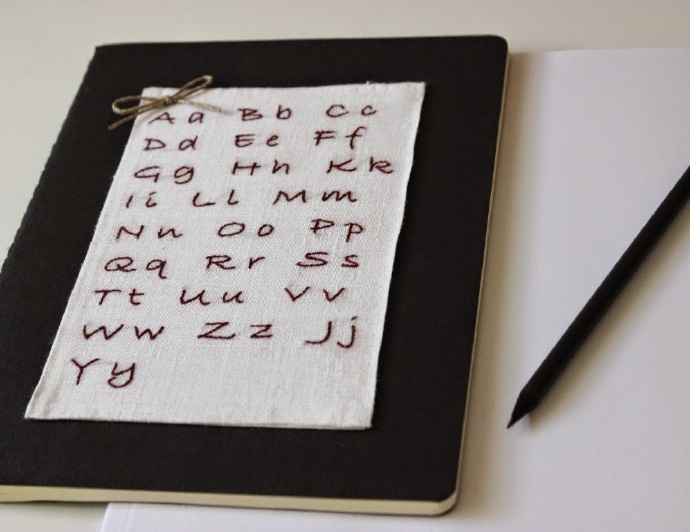 Aa Bb Cc
Dd Ee Ff
Gg Hh Kk
Ii Ll Mm
Nn Oo Pp
Qq Rr Ss
Tt Uu Vv
Ww Zz Jj
Yy